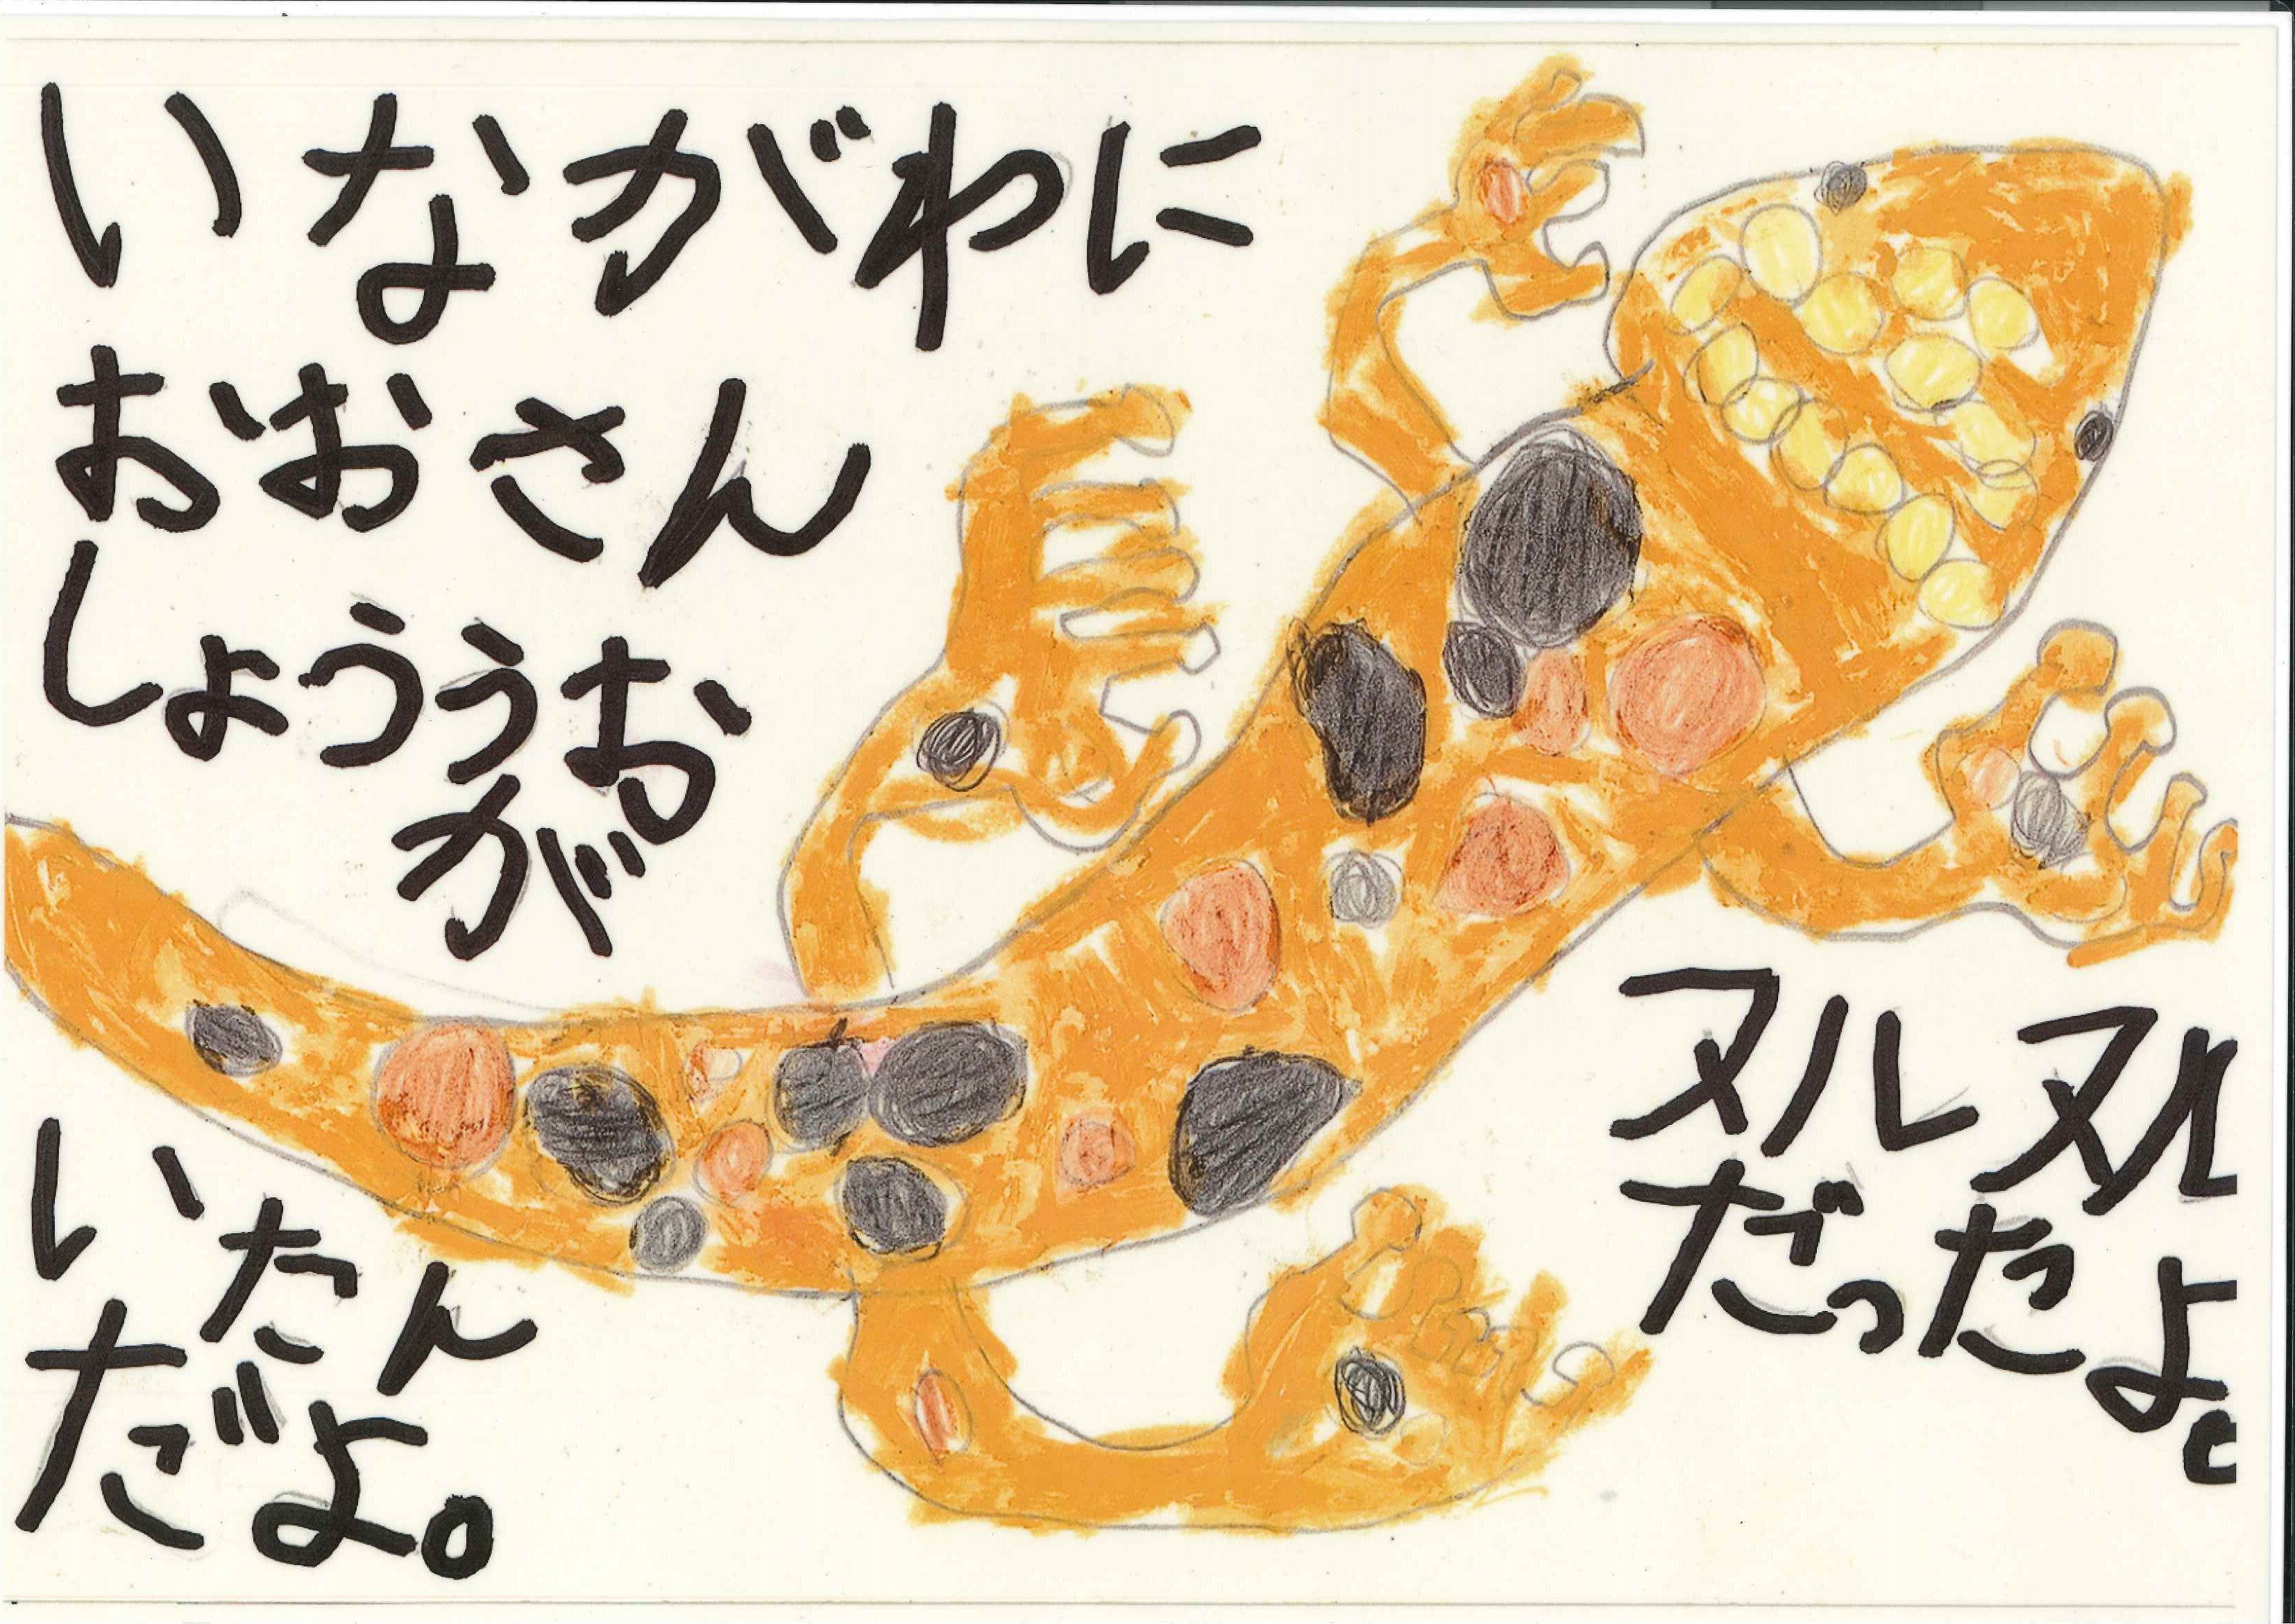 いながわに
おおさん
しょううお
が
いたん
だよ。
ヌルヌル
だったよ。